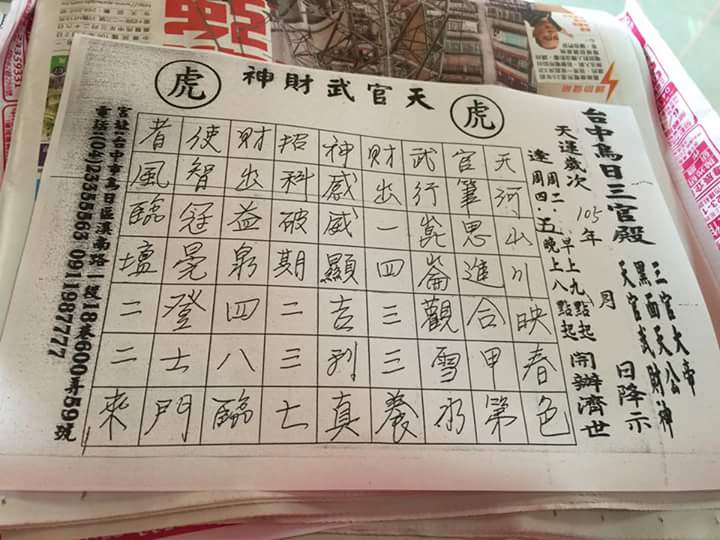 虎
天官武財神
虎
台中烏日三官殿
天運歲次 105年 月 日降示
三官大帝
黑面天公
天官武財神
逢周二.早上九點起
周四.五晚上八點起
開辦濟世
天河山川映春色
官筆思進合甲第
武行崑崙觀雪
財出一四三三養
神感威顯吉列真
招科破期二三七
財出益四八臨
使智冠晃登士門
者風臨壇二二來
宮址:台中市烏日區溪南路一段18巷600弄59號
電話(04)23355563 0911987777